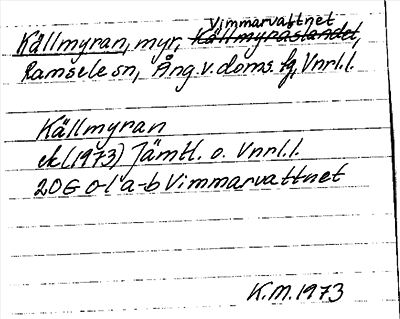 Vimmarvattnet
Källmyran, myr, Källmyraslandet,
Ramsele sn, Ång.v.doms fg, Vnrl.l.
Källmyran
ek (1973) Jämtl. o. Vnrl.l.
20G o-l a-b Vimmarvattnet
K.M.1973